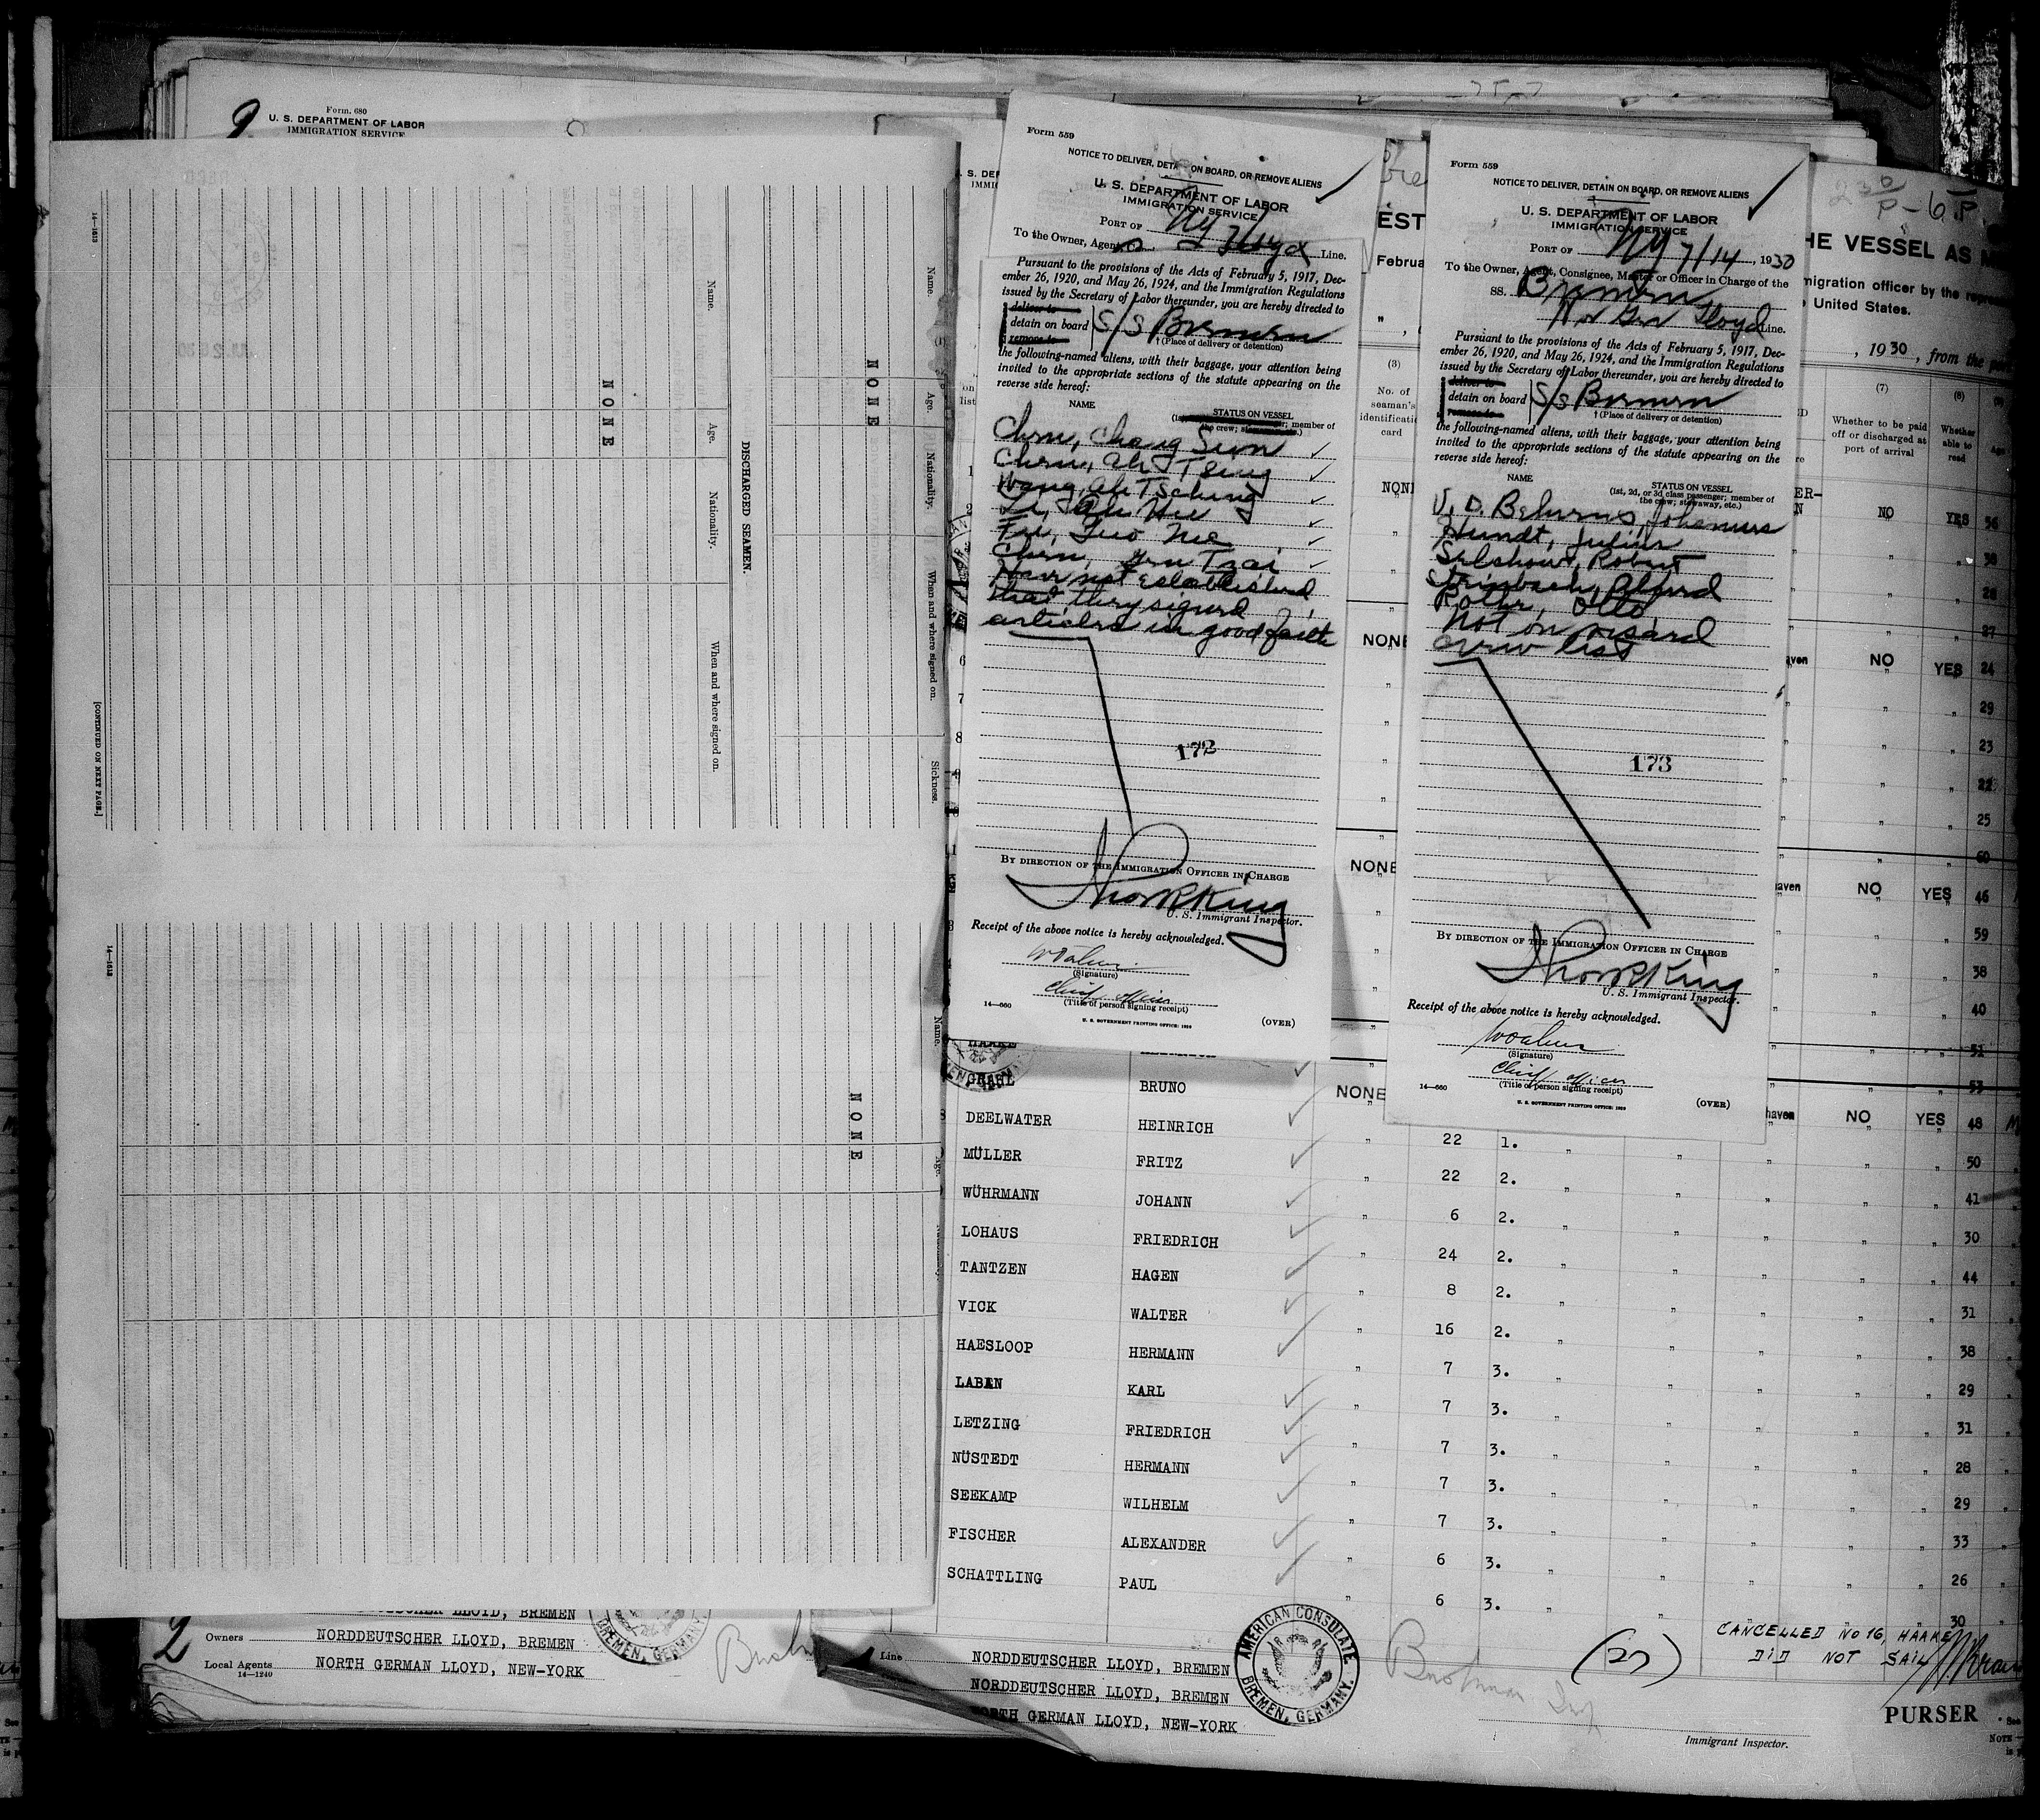 2
Form. 680
U. S. DEPARTMENT OF LABOR
IMMIGRATION SERVICE
14—1613
Name.
Age.
Nationality.
When and where signed on.
Sickness.
NONE
DISCHARGED SEAMEN.
Name.
Age.
Nationality.
When and where signed on.
NONE
[CONTINUED ON NEXT PAGE]
14—1613
Name.
Age.
NONE
2
NORDDEUTSCHER LLOYD, BREMEN
Owners NORDDEUTSCHER LLOYD, BREMEN
Local Agents NORTH GERMAN LLOYD, NEW-YORK
14—1240
BREMEN, GERMANY.
Form 559
NOTICE TO DELIVER, DETAIN ON BOARD, OR REMOVE ALIENS
U. S. DEPARTMENT OF LABOR
IMMIGRATION SERVICE
PORT OF NY
To the Owner, Agent, Lloyd Line.
Pursuant to the provisions of the Acts of February 5, 1917, Dec-
ember 26, 1920, and May 26, 1924, and the Immigration Regulations
issued by the Secretary of Labor thereunder, you are hereby directed to
deliver to
detain on board S/S Bremen
remove to
† (Place of delivery or detention)
the following-named aliens, with their baggage, your attention being
invited to the appropriate sections of the statute appearing on the
reverse side hereof:
NAME
STATUS ON VESSEL
member of
the crew;
Chen, Chang Sun ✓
Chen, Ah Tsing ✓
Wang, Ah Tsching ✓
Le, Ah Hie ✓
Fu, Guo Nie ✓
Chen, Gen Tzai ✓
Have not established
that they signed
articles in good faith
172
BY DIRECTION OF THE IMMIGRATION OFFICER IN CHARGE
Thos R King
U. S. Immigrant Inspector.
Receipt of the above notice is hereby acknowledged.
(Signature)
Chief officer
(Title of person signing receipt)
14—660
U. S. GOVERNMENT PRINTING OFFICE: 1929
(OVER)
Form 559
NOTICE TO DELIVER, DETAIN ON BOARD, OR REMOVE ALIENS
U. S. DEPARTMENT OF LABOR
IMMIGRATION SERVICE
PORT OF NY 7/14, 1930
To the Owner, Agent, Consignee, Master or Officer in Charge of the
SS. Bremen
Nor Ger Lloyd Line.
Pursuant to the provisions of the Acts of February 5, 1917, Dec-
ember 26, 1920, and May 26, 1924, and the Immigration Regulations
issued by the Secretary of Labor thereunder, you are hereby directed to
deliver to
detain on board S/S Bremen
remove to
† (Place of delivery or detention)
the following-named aliens, with their baggage, your attention being
invited to the appropriate sections of the statute appearing on the
reverse side hereof:
NAME
STATUS ON VESSEL
(1st, 2d, or 3d class passenger; member of
the crew; stowaway, etc.)
V. D. Behrens, Johannes
Hundt, Julius
Selshout, Robert
Steinbach, Alfred
Rothe, Otto
Not on visaed
crew list
173
BY DIRECTION OF THE IMMIGRATION OFFICER IN CHARGE
Thos R King
U. S. Immigrant Inspector.
Receipt of the above notice is hereby acknowledged.
(Signature)
Chief officer
(Title of person signing receipt)
14—660
U. S. GOVERNMENT PRINTING OFFICE: 1929
(OVER)
EST
Februa
(3)
No. of
seaman's
identificati
card
NONE
NONE
NONE
HE VESSEL AS
migration officer by the
United States.
, 1930, from the
(7)
Whether to be paid
off or discharged at
port of arrival
(8)
Whether
able to
read
NO YES 56
30
28
27
NO YES 24
29
23
22
25
60
NO YES 46
59
38
40
51
53
HAAKE
BRUNO NONE
DEELWATER HEINRICH 22 1. NO YES 48
MÜLLER FRITZ 22 2. 50
WÜHRMANN JOHANN 6 2. 41
LOHAUS FRIEDRICH 24 2. 30
TANTZEN HAGEN 8 2. 44
VICK WALTER 16 2. 31
HAESLOOP HERMANN 7 3. 38
LABAN KARL 7 3. 29
LETZING FRIEDRICH 7 3. 31
NÜSTEDT HERMANN 7 3. 28
SEEKAMP WILHELM 7 3. 29
FISCHER ALEXANDER 6 3. 33
SCHATTLING PAUL 6 3. 26
30
Line NORDDEUTSCHER LLOYD, BREMEN
NORDDEUTSCHER LLOYD, BREMEN
NORTH GERMAN LLOYD, NEW-YORK
AMERICAN CONSULATE
BREMEN, GERMANY.
(27)
CANCELLED NO 16, HAAKE
DID NOT SAIL
PURSER
Immigrant Inspector.